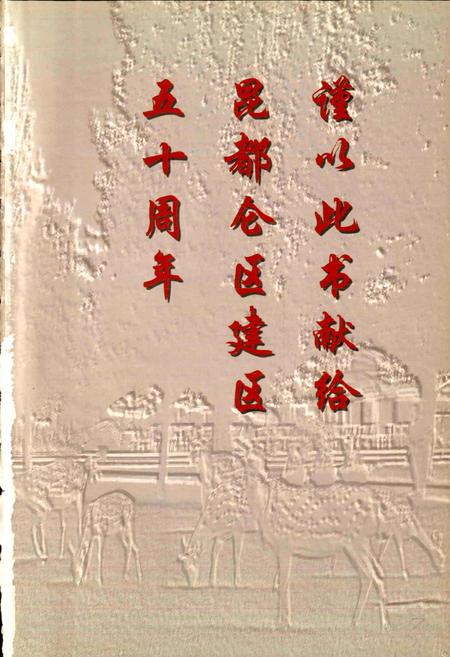 谨以此书献给
昆都仑区建区
五十周年